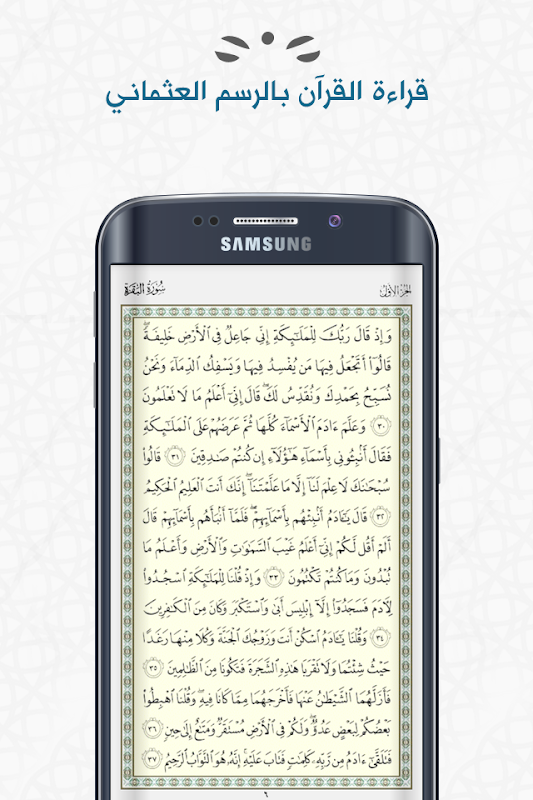 قراءة القرآن بالرسم العثماني
SAMSUNG
الجزء الأول
سورة البقرة
وَإِذْ قَالَ رَبُّكَ لِلْمَلَٰٓئِكَةِ إِنِّى جَاعِلٌ فِى ٱلْأَرْضِ خَلِيفَةً ۖ
قَالُوٓا۟ أَتَجْعَلُ فِيهَا مَن يُفْسِدُ فِيهَا وَيَسْفِكُ ٱلدِّمَآءَ وَنَحْنُ
نُسَبِّحُ بِحَمْدِكَ وَنُقَدِّسُ لَكَ ۖ قَالَ إِنِّىٓ أَعْلَمُ مَا لَا تَعْلَمُونَ
٣٠ وَعَلَّمَ ءَادَمَ ٱلْأَسْمَآءَ كُلَّهَا ثُمَّ عَرَضَهُمْ عَلَى ٱلْمَلَٰٓئِكَةِ
فَقَالَ أَنۢبِـُٔونِى بِأَسْمَآءِ هَٰٓؤُلَآءِ إِن كُنتُمْ صَٰدِقِينَ ٣١ قَالُوا۟
سُبْحَٰنَكَ لَا عِلْمَ لَنَآ إِلَّا مَا عَلَّمْتَنَآ ۖ إِنَّكَ أَنتَ ٱلْعَلِيمُ ٱلْحَكِيمُ
٣٢ قَالَ يَٰٓـَٔادَمُ أَنۢبِئْهُم بِأَسْمَآئِهِمْ ۖ فَلَمَّآ أَنۢبَأَهُم بِأَسْمَآئِهِمْ قَالَ
أَلَمْ أَقُل لَّكُمْ إِنِّىٓ أَعْلَمُ غَيْبَ ٱلسَّمَٰوَٰتِ وَٱلْأَرْضِ وَأَعْلَمُ مَا
تُبْدُونَ وَمَا كُنتُمْ تَكْتُمُونَ ٣٣ وَإِذْ قُلْنَا لِلْمَلَٰٓئِكَةِ ٱسْجُدُوا۟
لِـَٔادَمَ فَسَجَدُوٓا۟ إِلَّآ إِبْلِيسَ أَبَىٰ وَٱسْتَكْبَرَ وَكَانَ مِنَ ٱلْكَٰفِرِينَ
٣٤ وَقُلْنَا يَٰٓـَٔادَمُ ٱسْكُنْ أَنتَ وَزَوْجُكَ ٱلْجَنَّةَ وَكُلَا مِنْهَا رَغَدًا
حَيْثُ شِئْتُمَا وَلَا تَقْرَبَا هَٰذِهِ ٱلشَّجَرَةَ فَتَكُونَا مِنَ ٱلظَّٰلِمِينَ ٣٥
فَأَزَلَّهُمَا ٱلشَّيْطَٰنُ عَنْهَا فَأَخْرَجَهُمَا مِمَّا كَانَا فِيهِ ۖ وَقُلْنَا ٱهْبِطُوا۟
بَعْضُكُمْ لِبَعْضٍ عَدُوٌّ ۖ وَلَكُمْ فِى ٱلْأَرْضِ مُسْتَقَرٌّ وَمَتَٰعٌ إِلَىٰ حِينٍ ٣٦
فَتَلَقَّىٰٓ ءَادَمُ مِن رَّبِّهِۦ كَلِمَٰتٍ فَتَابَ عَلَيْهِ ۚ إِنَّهُۥ هُوَ ٱلتَّوَّابُ ٱلرَّحِيمُ ٣٧
٦